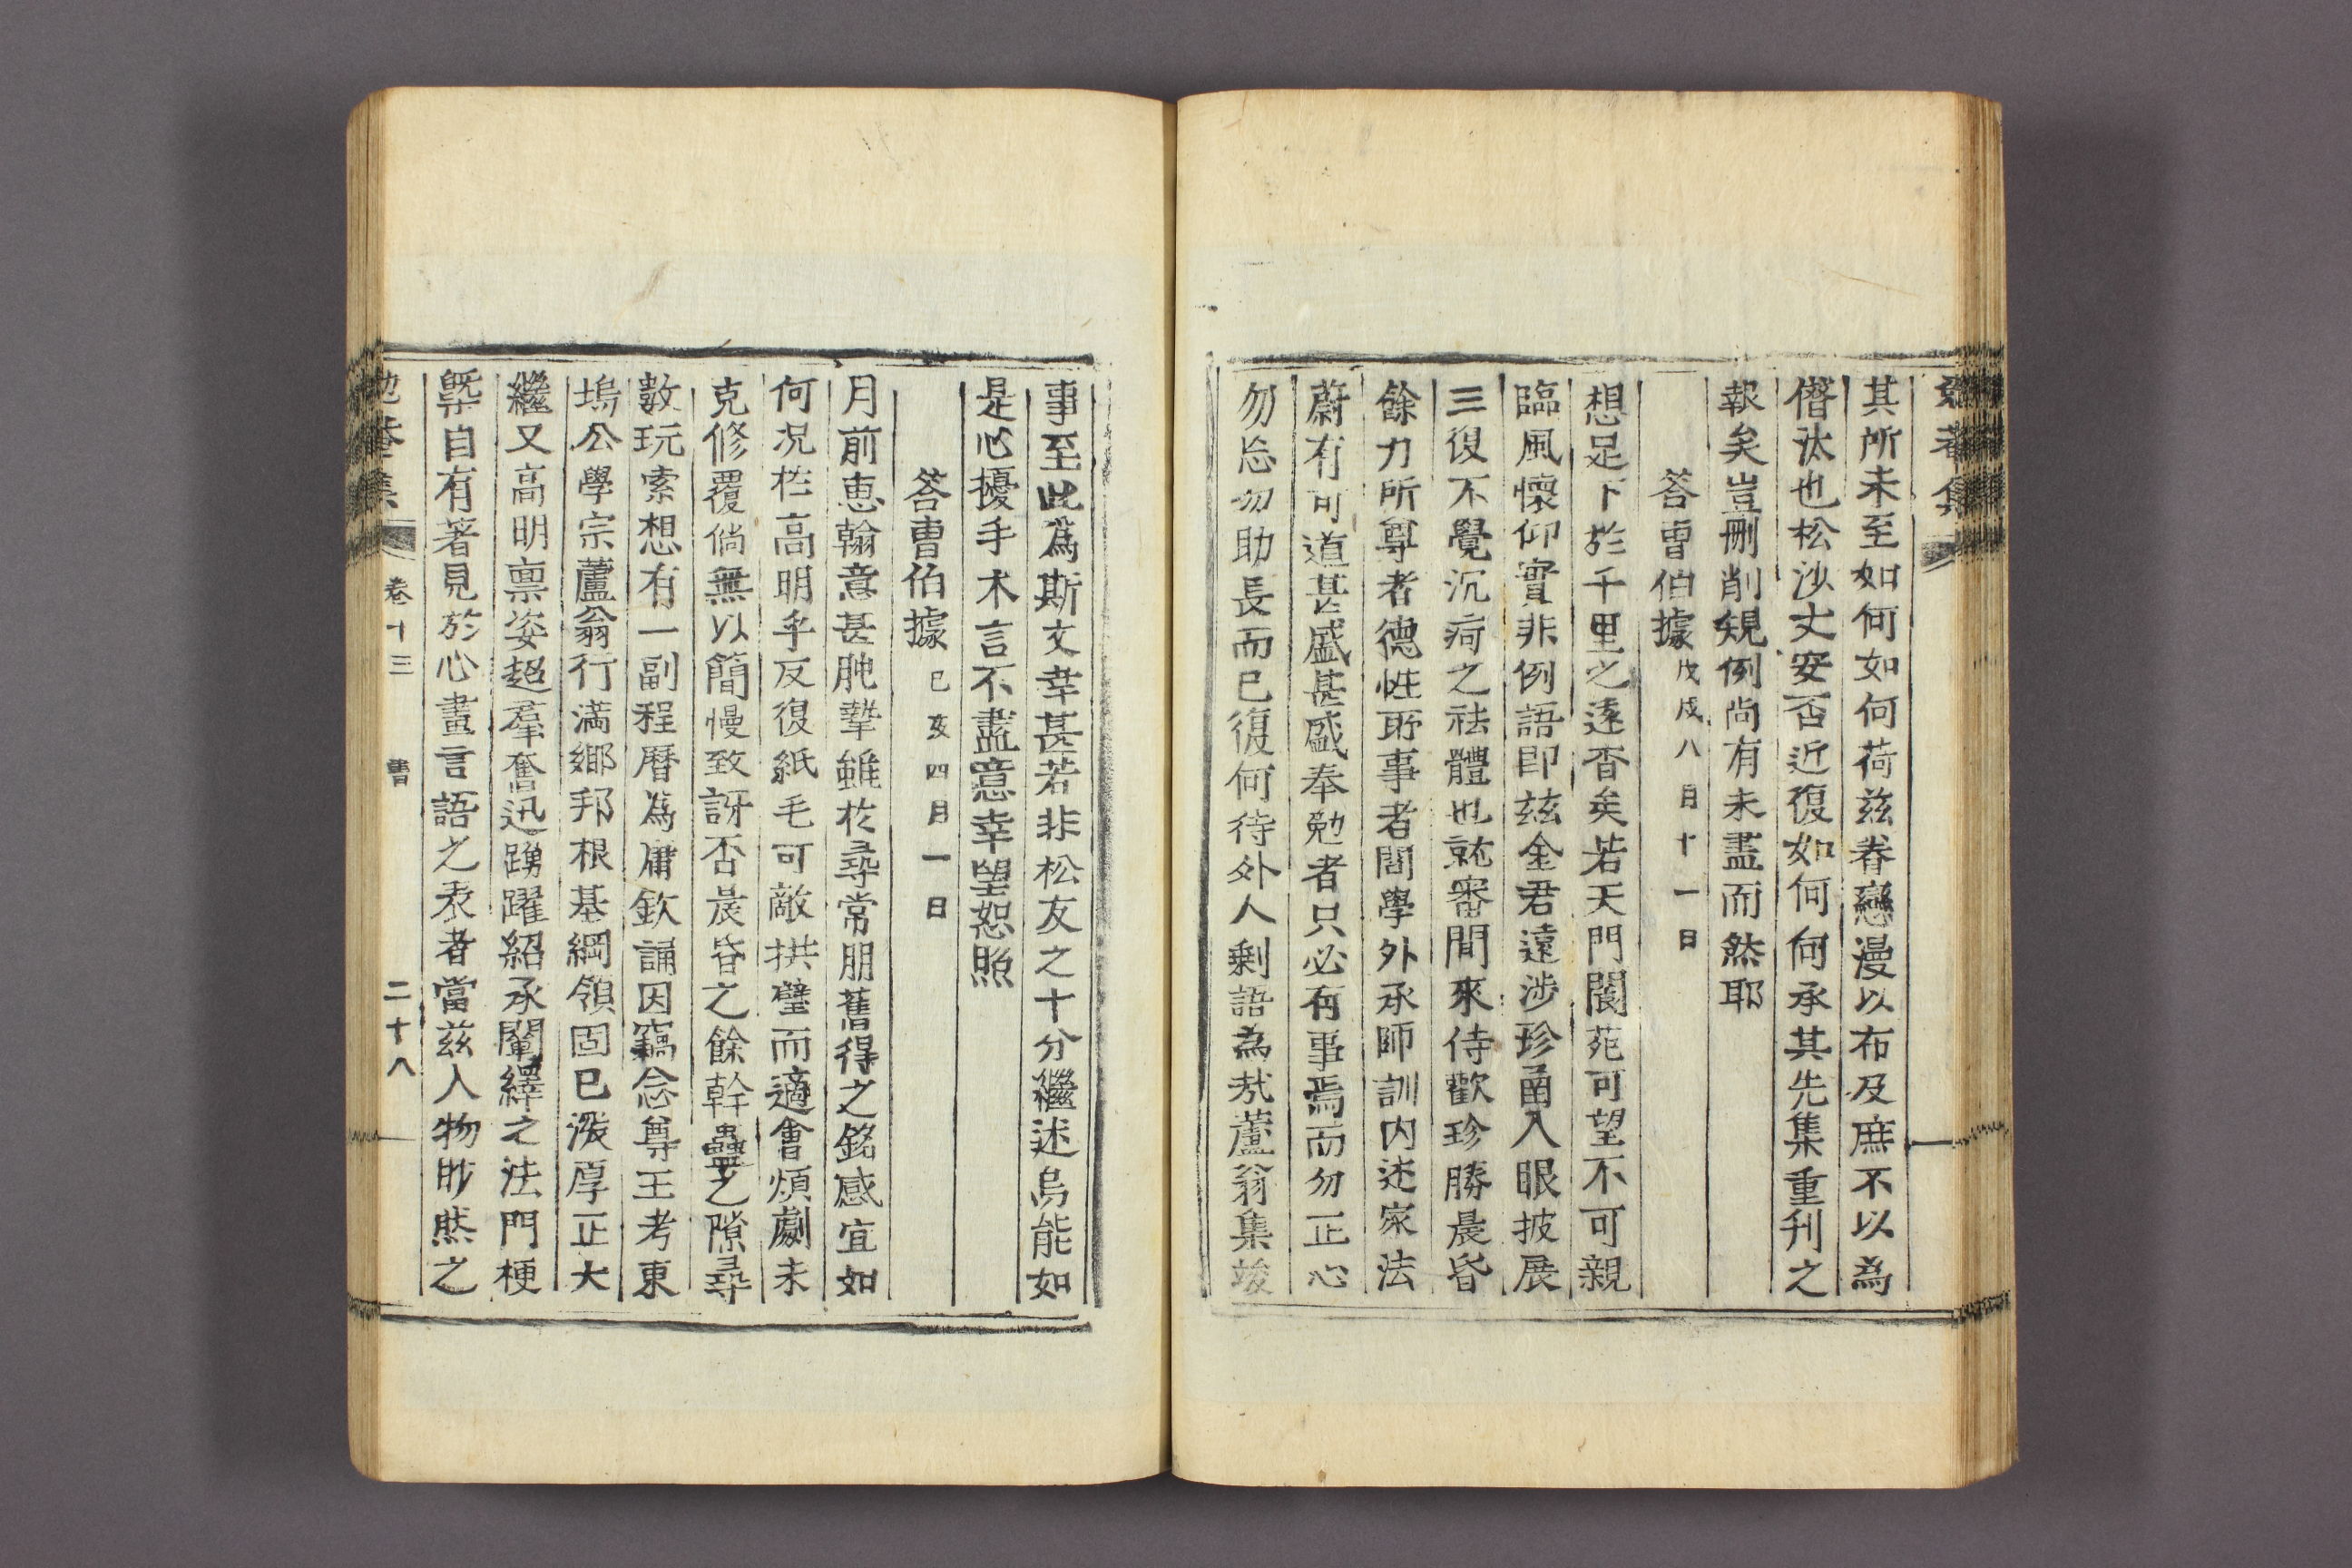 其所未至如何如何荷玆眷戀漫以布及庶不以為
僭汰也松沙丈安否近復如何何承其先集重刊之
報矣豈刪削䂓例尙有未盡而然耶
答曺伯據 戊戌八月十一日
想足下於千里之遠杳矣若天門閬苑可望不可親
臨風懷仰實非例語卽玆金君遠涉珍函入眼披展
三復不覺沉痾之祛體也就審間來侍歡珍勝晨昏
餘力所尊者德性所事者問學外承師訓內述家法
蔚有可道甚盛甚盛奉勉者只必有事焉而勿正心
勿忘勿助長而已復何待外人剩語為哉蘆翁集竣
事至此爲斯文幸甚若非松友之十分繼述烏能如
是心擾手木言不盡意幸望恕照
答曺伯據 己亥四月一日
月前惠翰意甚肫摯雖於尋常朋舊得之銘感宜如
何况在高明乎反復紙毛可敵拱璧而適會煩劇未
克修覆倘無以簡慢致訝否晨昏之餘幹蠱之隙尋
數玩索想有一副程曆爲庸欽誦因竊念尊王考東
塢公學宗蘆翁行滿鄉邦根基綱領固已深厚正大
繼又高明禀姿超羣奮迅踴躍紹承闡繹之法門梗
槩自有著見於心畫言語之表者當玆人物眇然之
卷十三 書 二十八